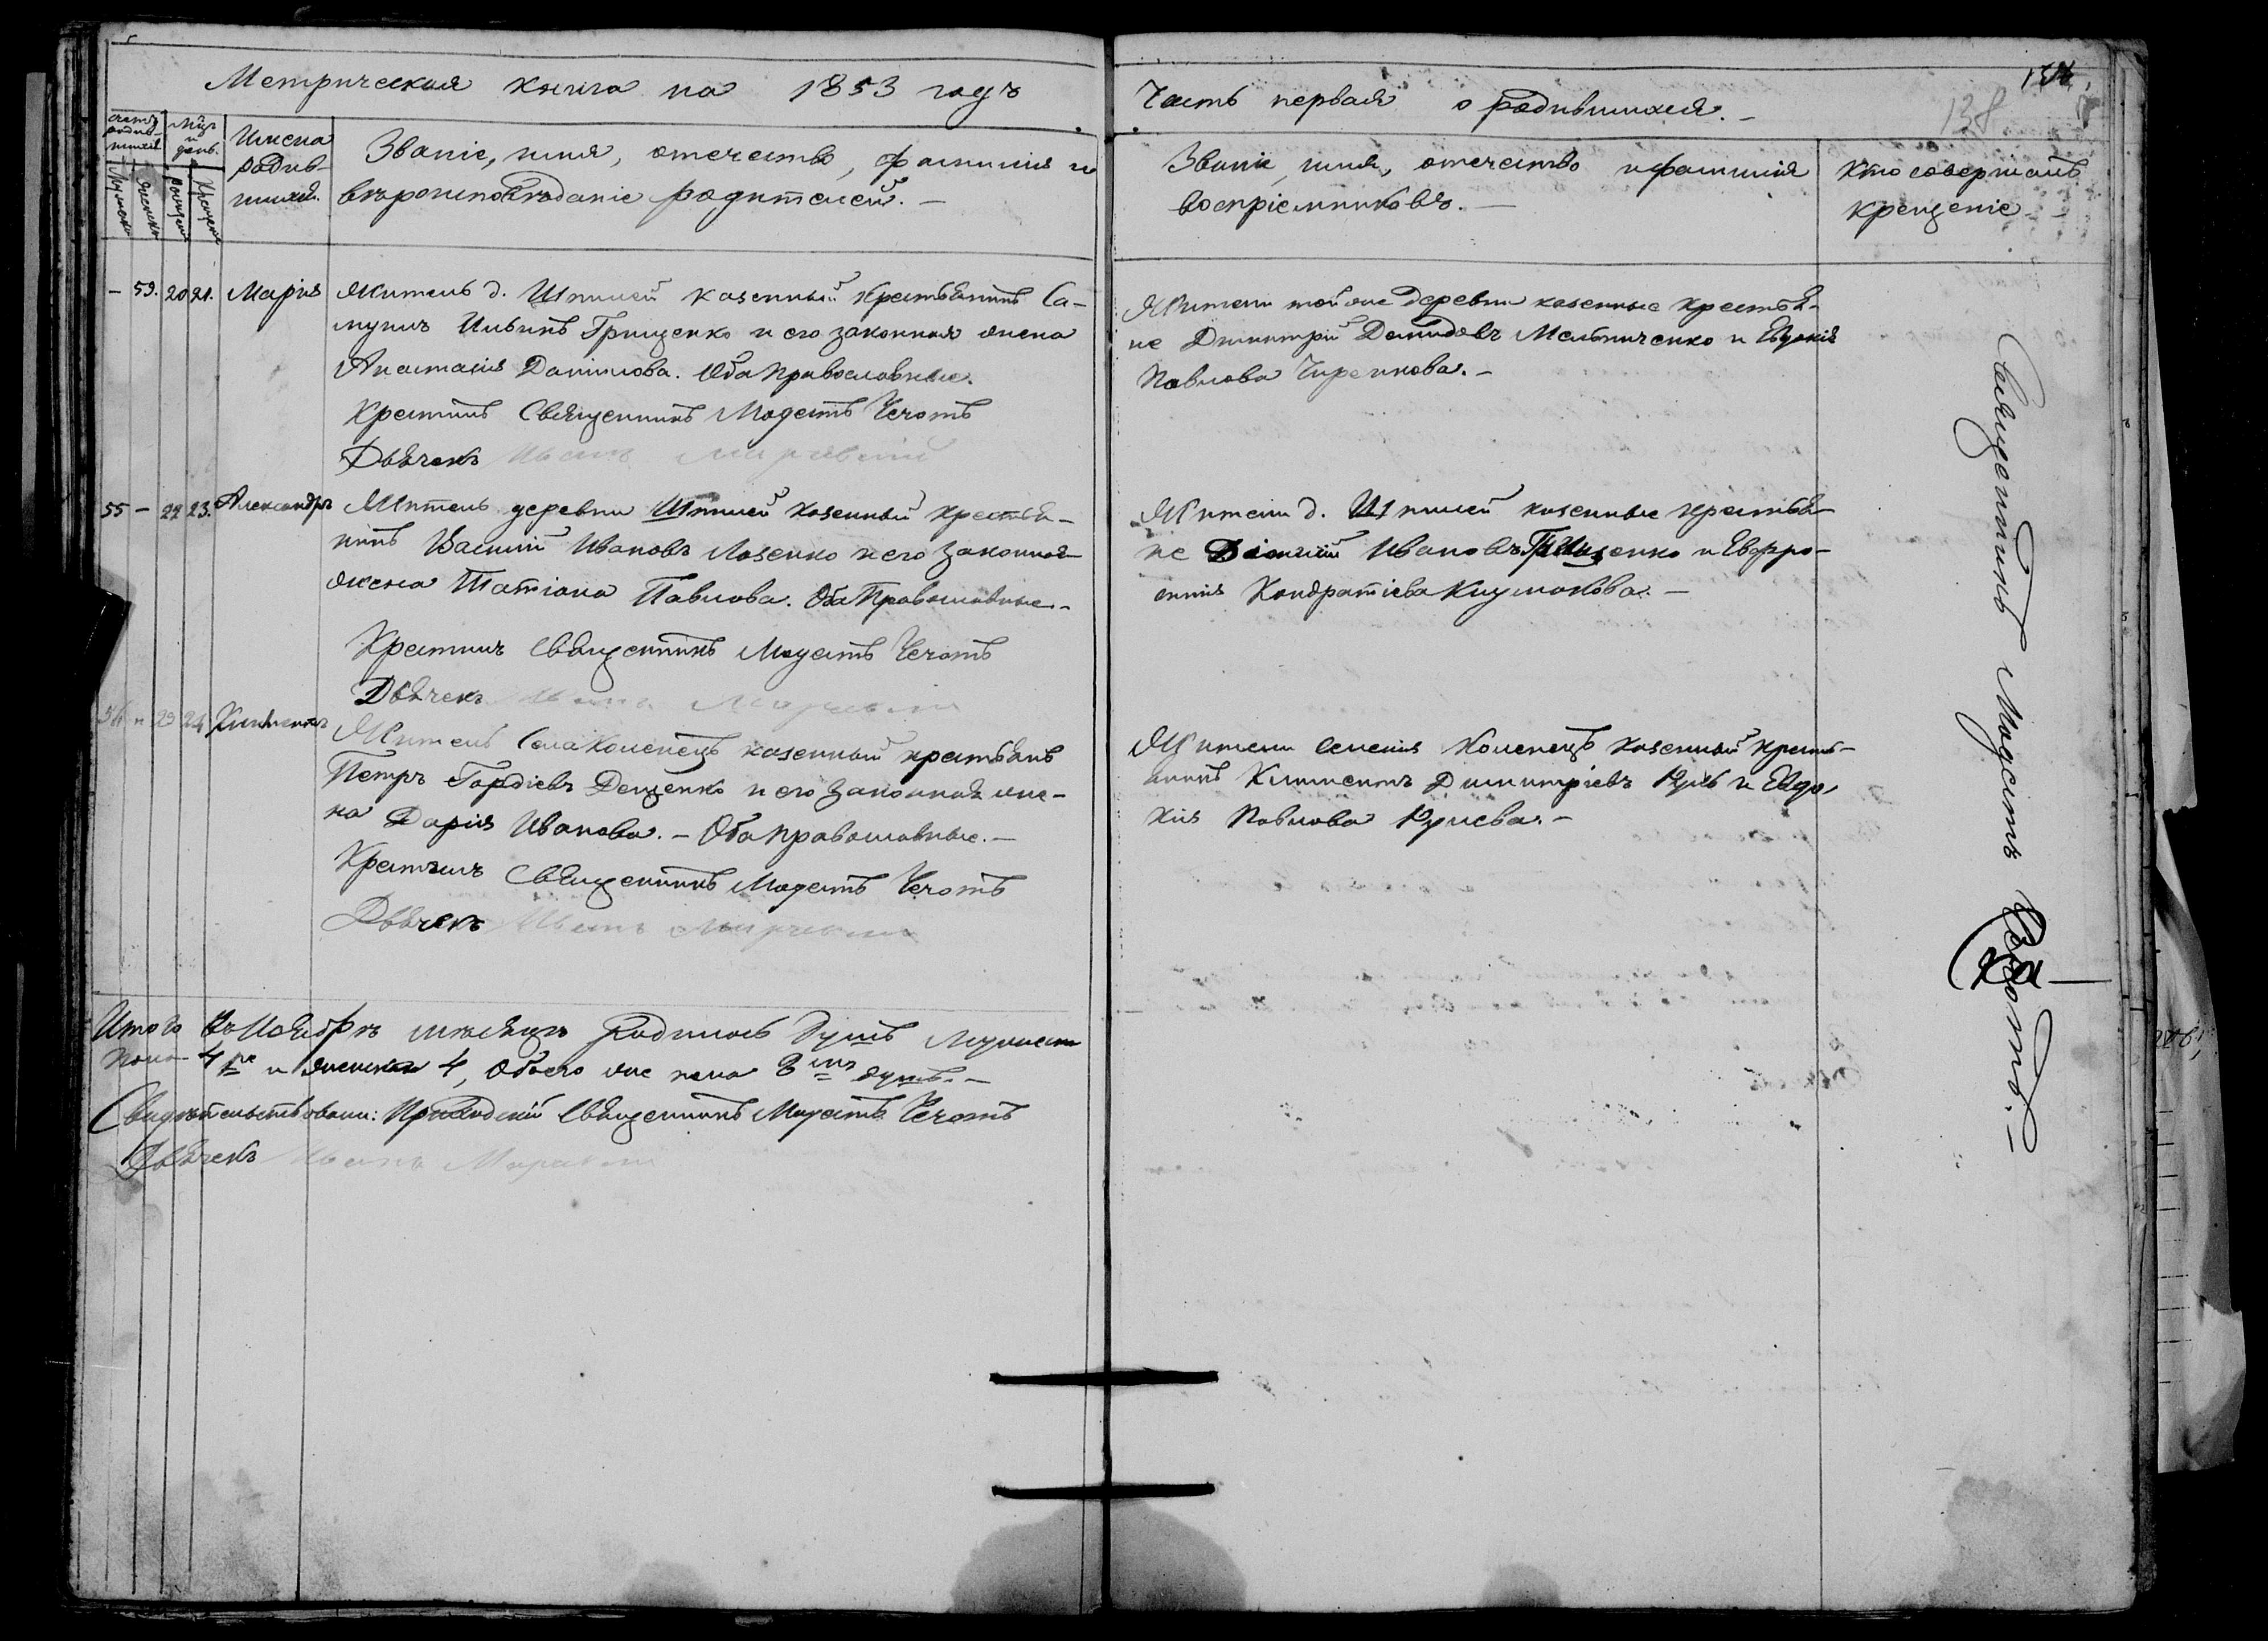 Метрическая книга на 1853 годъ
Часть первая о родившихся.
138
счетъ родив-шихся
Мцъ и день.
Имена родив-шихся.
Званіе, имя, отечество, фамилія и
вѣроисповѣданіе родителей. —
Званіе, имя, отечество и фамилія
воспріемниковъ. —
Кто совершалъ
крещеніе —
– 59. 20 21. Марія
Житель д. Шпилей казенный крестьянинъ Са-
муилъ Ильинъ Грищенко и его законная жена
Анастасія Данилова. Оба православные.
Крестилъ Священникъ Модестъ Чехотъ
Дьячекъ Иванъ
Жители той же деревни казенные крестья-
не Димитрій Демидовъ Мельниченко и Евдокія
Павлова
55 – 22 23. Александръ
Житель деревни Шпилей казенный крестья-
нинъ Василій Ивановъ Лозенко и его законная
жена Татіана Павлова. Оба Православные. –
Крестилъ Священникъ Модестъ Чехотъ
Дьячекъ Иванъ
Жители д. Шпилей казенные крестья-
не Діонисій Ивановъ Грищенко и Евфро-
синія Кондратіева
56 – 23 24 Климентъ
Житель села Коленецъ казенный крестьянъ
Петръ Гордіевъ Дещенко и его законная же-
на Дарія Иванова. – Оба православные. –
Крестилъ Священникъ Модестъ Чехотъ
Дьячекъ Иванъ
Жители селенія Коленецъ казенный кресть-
янинъ Климентъ Димитріевъ Куль и Евдо-
кія Павлова Кулева. –
Священникъ Модестъ Чехотъ. –
Итого въ Ноябрѣ мѣсяцѣ родилось душъ мужеска
пола 4ре и женска 4, обоего же пола 8мь душъ. –
Свидѣтельствовали: Приходскій Священникъ Модестъ Чехотъ
Дьячекъ Иванъ